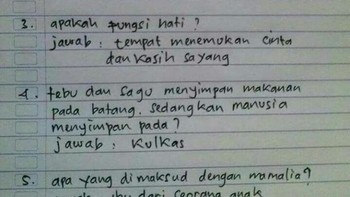 3. apakah fungsi hati ?
jawab : tempat menemukan cinta
dan kasih sayang
4. tebu dan sagu menyimpan makanan
pada batang. sedangkan manusia
menyimpan pada ?
jawab : kulkas
5. apa yang dimaksud dengan mamalia ?
ibu dari seorang anak